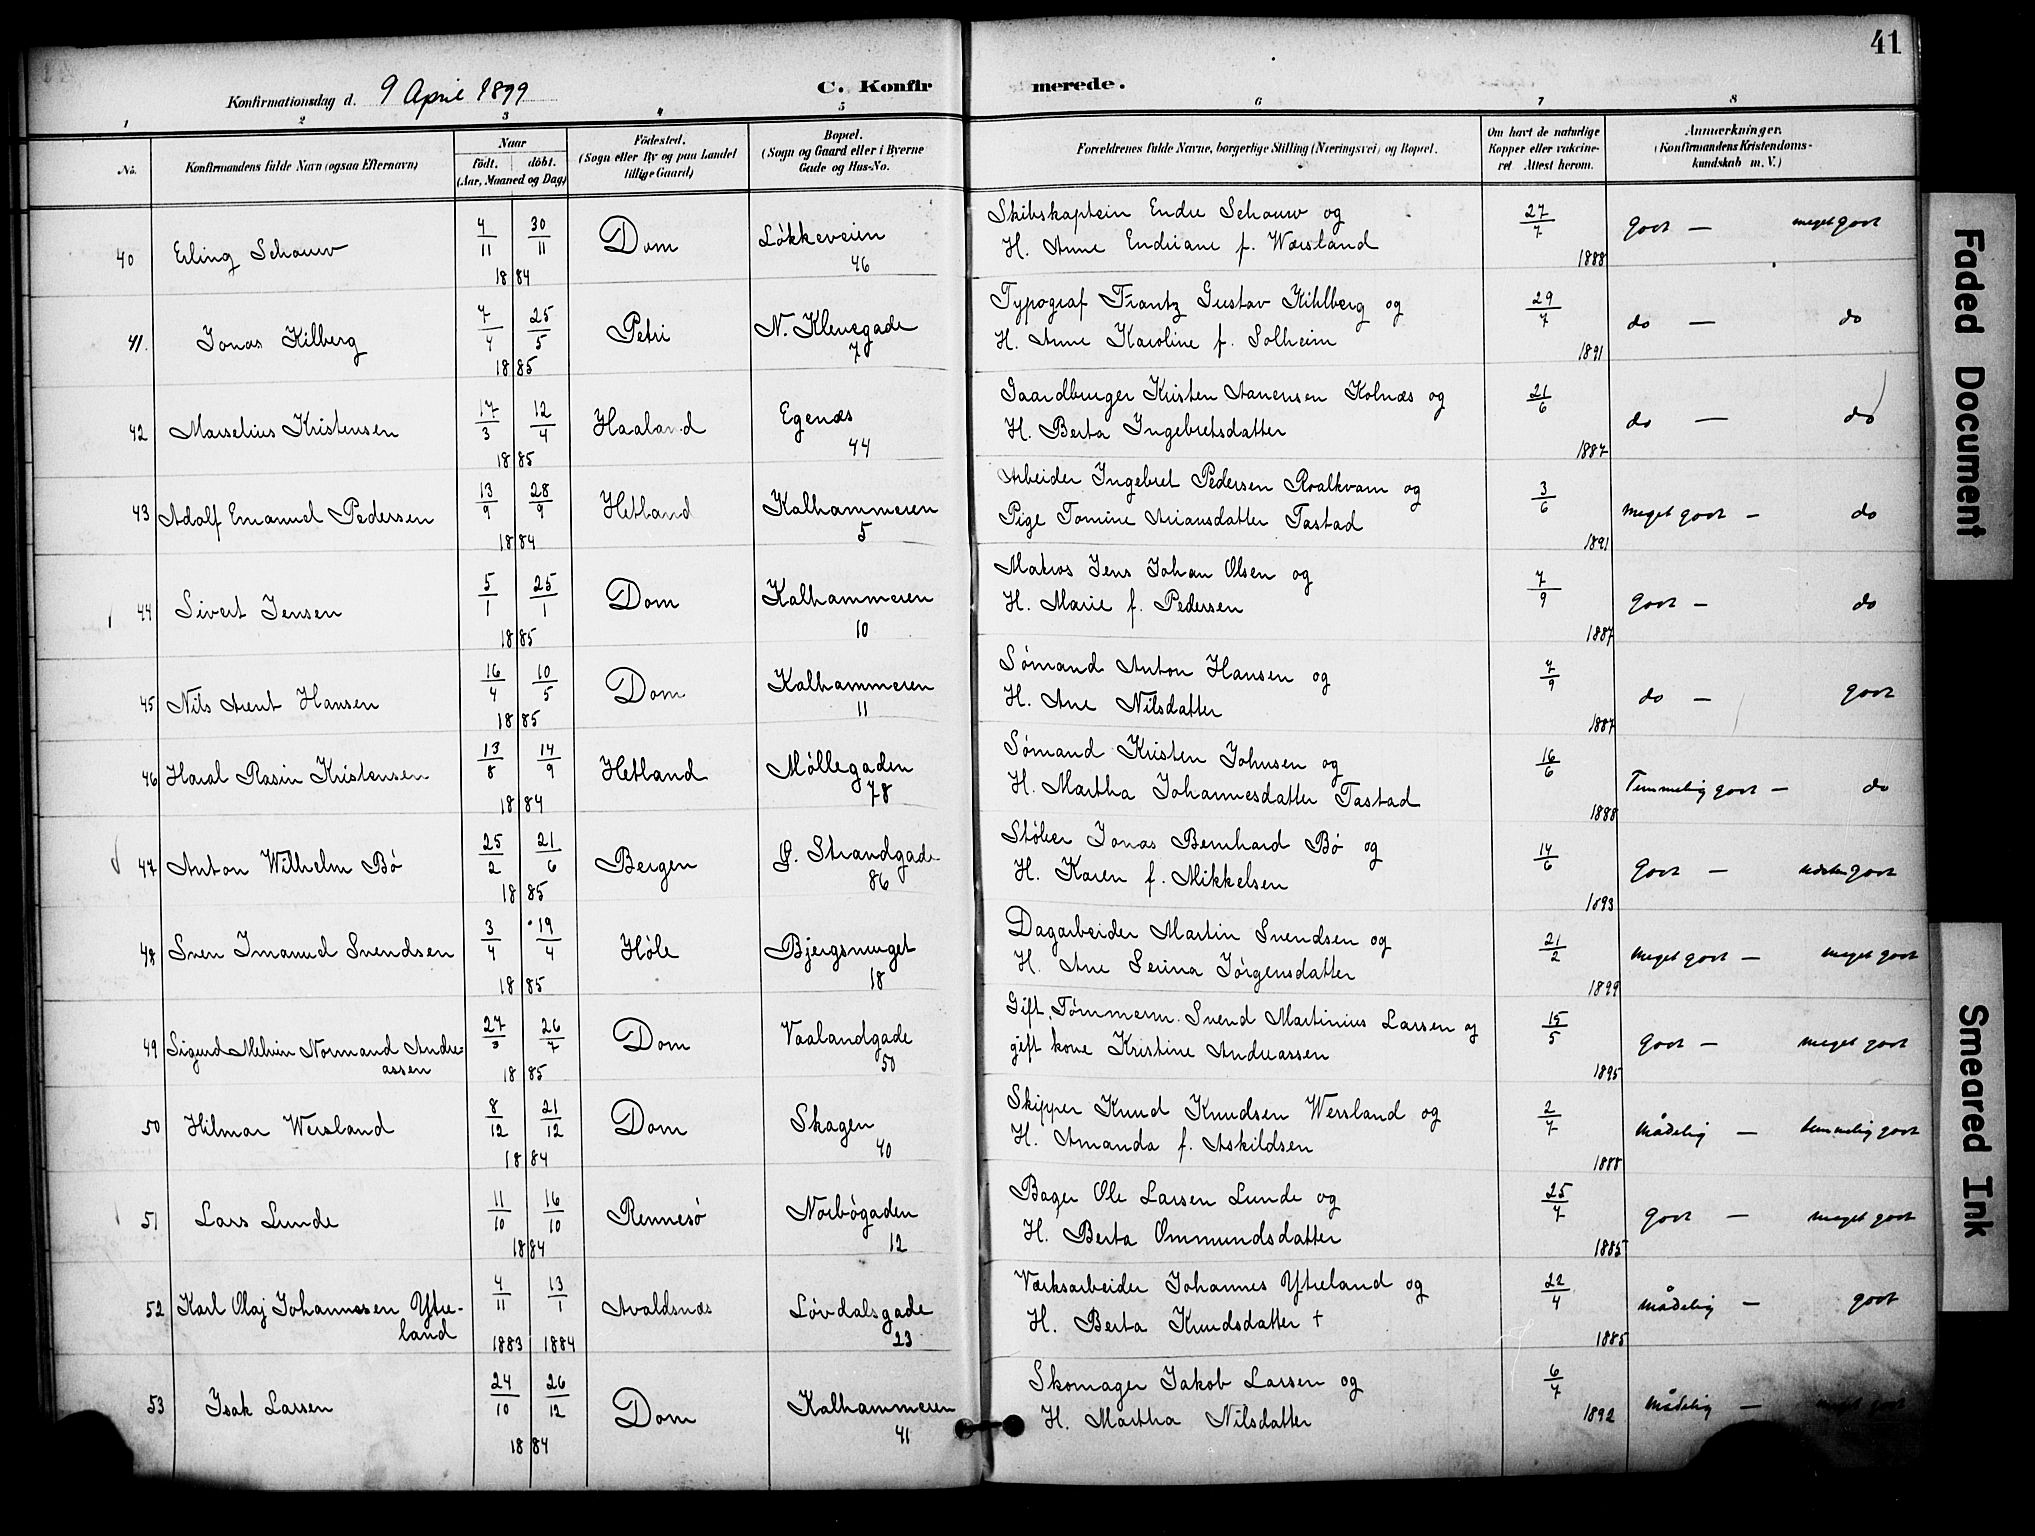 41
Konfirmationsdag d. 9 April 1899
C. Konfirmerede.
1 2 3 4 5 6 7 8
No.
Konfirmandens fulde Navn (ogsaa Efternavn)
Naar
födt. döbt.
(Aar, Maaned og Dag)
Födested.
(Sogn eller By og paa Landet
tillige Gaard)
Bopæl.
(Sogn og Gaard eller i Byerne
Gade og Hus-No.
Forældrenes fulde Navne, borgerlige Stilling (Næringsvei) og Bopæl.
Om havt de naturlige
Kopper eller vakcine-
ret Attest herom.
Anmærkninger.
(Konfirmandens Kristendoms-
kundskab m. V.)
40 Erling Schouw 4/11 30/11 1884 Dom Løkkeveien 46 Skibskaptein Endre Schouw og 27/7 1888 Godt — meget godt
H. Anne Endriane f. Wærsland
41. Jonas Kilberg 7/4 25/5 1885 Petri N. Klevegade 7 Typograf Frantz Gustav Kihlberg og 29/7 1891 do — do
H. Anne Karoline f. Solheim
42 Marselius Kristensen 17/3 12/4 1885 Haaland Egenæs 44 Gaardbruger Kristen Aanensen Kolnæs og 21/6 1887 do — do
H. Berta Ingebretsdatter
43 Adolf Emanuel Pedersen 13/9 28/9 1884 Hetland Kalhammeren 5 Arbeider Ingebret Pedersen Roalkvam og 3/6 1891 meget godt — do
Pige Tomine Ariansdatter Tastad
44 Sivert Jensen 5/1 25/1 1885 Dom Kalhammeren 10 Matros Jens Johan Olsen og 7/9 1887 Godt — do
H. Marie f. Pedersen
45 Nils Arent Hansen 16/4 10/5 1885 Dom Kalhammeren 11 Sømand Anton Hansen og 7/9 1887 do — godt
H. Ane Nilsdatter
46 Haral Rasin Kristensen 13/8 14/9 1884 Hetland Møllegaden 78 Sømand Kristen Johnsen og 16/6 1888 Temmelig godt — do
H. Martha Johannesdatter Tastad
47 Anton Wilhelm Bö 25/2 21/6 1885 Bergen Ø. Strandgade 86 Støber Jonas Bernhard Bø og 14/6 1893 Godt — godt
H. Karen f. Mikkelsen
48 Sven Imanuel Svendsen 3/4 19/4 1885 Høle Bjergsmuget 18 Dagarbeider Martin Svendsen og 21/2 1899 meget godt — meget godt
H. Ane Serina Jørgensdatter
49 Sigurd Melvin Normand Andre-
assen 27/3 26/7 1885 Dom Vaalandgade 50 Gift Tømmerm. Svend Martinius Larsen og 15/5 1895 godt — meget godt
gift kone Kristine Andreassen
50 Hilmar Wersland 8/12 21/12 1884 Dom Skagen 40 Skipper Knud Knudsen Wersland og 2/7 1888 mådelig — temmelig godt
H. Amanda f. Askildsen
51 Lars Lunde 11/10 16/10 1884 Rennesö Norbögaden 12 Bager Ole Larsen Lunde og 25/7 1885 godt — meget godt
H. Berta Ommundsdatter
52 Karl Olaj Johannesen Ytre-
land 4/11 1883 13/1 1884 Avaldsnæs Løvdalsgade 23 Værksarbeider Johannes Ytreland og 22/4 1885 mådelig — godt
H. Berta Knudsdatter †
53 Isak Larsen 24/10 26/12 1884 Dom Kalhammeren 41 Skomager Jakob Larsen og 6/7 1892 mådelig — meget godt
H. Martha Nilsdatter
Faded Document
Smeared Ink